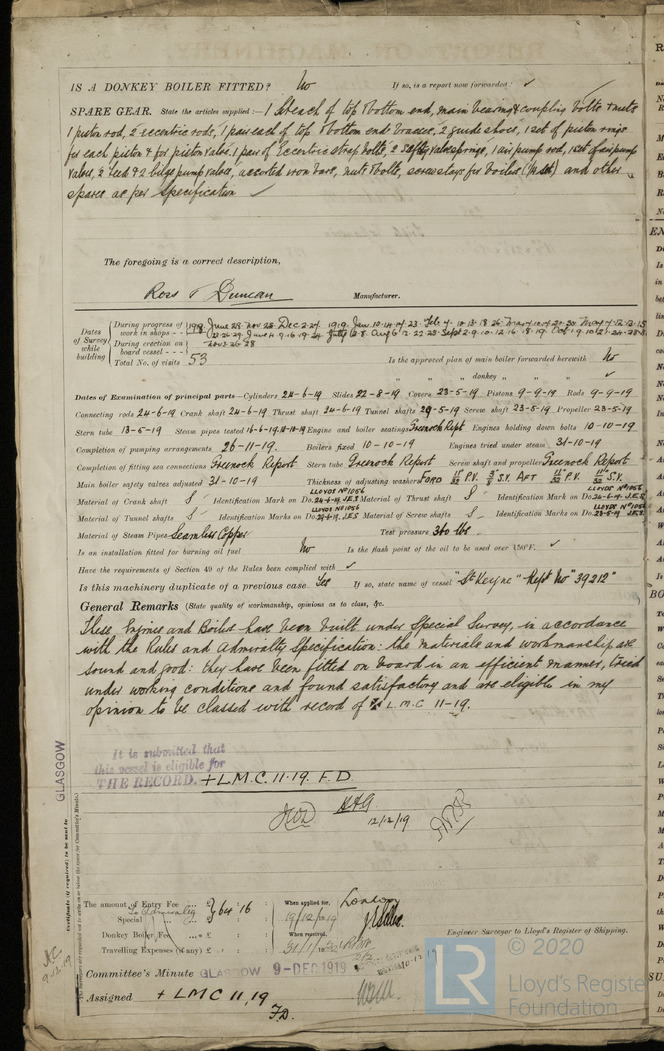 IS A DONKEY BOILER FITTED? No If so, is a report now forwarded? ✓
SPARE GEAR. State the articles supplied:— 1 Set each of top & bottom end, main bearing & coupling bolts & nuts
1 piston rod, 2 eccentric rods, 1 pair each of top & bottom end brasses, 2 guide shoes, 1 set of piston rings
for each piston & for piston valve. 1 pair of Eccentric strap bolts, 2 safety valve springs, 1 air pump rod, 1 set of air pump
valves, 2 feed & 2 bilge pump valves, assorted iron bars, nuts & bolts, screw stays for boiler and other
spares as per Specification ✓
The foregoing is a correct description,
Ross & Duncan Manufacturer.
Dates of Survey while building
During progress of work in shops - -
During erection on board vessel - - -
Nov 3. 26. 28
Total No. of visits 53
Is the approved plan of main boiler forwarded herewith No
" " " donkey " " " ✓
Dates of Examination of principal parts—Cylinders 24-6-19 Slides 22-8-19 Covers 23-5-19 Pistons 9-9-19 Rods 9-9-19
Connecting rods 24-6-19 Crank shaft 24-6-19 Thrust shaft 24-6-19 Tunnel shafts 29-5-19 Screw shaft 23-5-19 Propeller 23-5-19
Stern tube 13-5-19 Steam pipes tested 16-6-19. Engine and boiler seatings Greenock Rept Engines holding down bolts 10-10-19
Completion of pumping arrangements 26-11-19. Boilers fixed 10-10-19 Engines tried under steam 31-10-19
Completion of fitting sea connections Greenock Report Stern tube Greenock Report Screw shaft and propeller Greenock Report
Main boiler safety valves adjusted 31-10-19 Thickness of adjusting washers FORD P.V. S.V. AFT P.V. S.V.
Material of Crank shaft S Identification Mark on Do. LLOYDS No 1056 24-6-19 J.E.S Material of Thrust shaft S Identification Mark on Do. LLOYDS No 1056 24-6-19 J.E.S
Material of Tunnel shafts S Identification Marks on Do. LLOYDS No 1056 29-5-19 J.E.S Material of Screw shafts S Identification Marks on Do. LLOYDS No 1056 23-5-19 J.E.S
Material of Steam Pipes Seamless Copper Test pressure 360 lbs
Is an installation fitted for burning oil fuel No Is the flash point of the oil to be used over 150°F. ✓
Have the requirements of Section 49 of the Rules been complied with ✓
Is this machinery duplicate of a previous case Yes If so, state name of vessel "St Keyne" Rept No "39212"
General Remarks (State quality of workmanship, opinions as to class, &c.
These Engines and Boilers have been built under Special Survey, in accordance
with the Rules and Admiralty Specification: the materials and workmanship are
sound and good: they have been fitted on board in an efficient manner, tried
under working conditions and found satisfactory and are eligible in my
opinion to be classed with record of + L.M.C 11-19.
It is submitted that
this vessel is eligible for
THE RECORD. + L.M.C. 11.19. F.D
12/12/19
GLASGOW
Certificate (if required) to be sent to
The amount of Entry Fee ... £
To Admiralty
Special £ 64 : 16
Donkey Boiler Fee ... £
Travelling Expenses (if any) £
When applied for, London
19/12/19
When received,
Engineer Surveyor to Lloyd's Register of Shipping.
Committee's Minute GLASGOW 9-DEC 1919
Assigned + LMC 11,19
F.D.
LR
© 2020
Lloyd's Register
Foundation